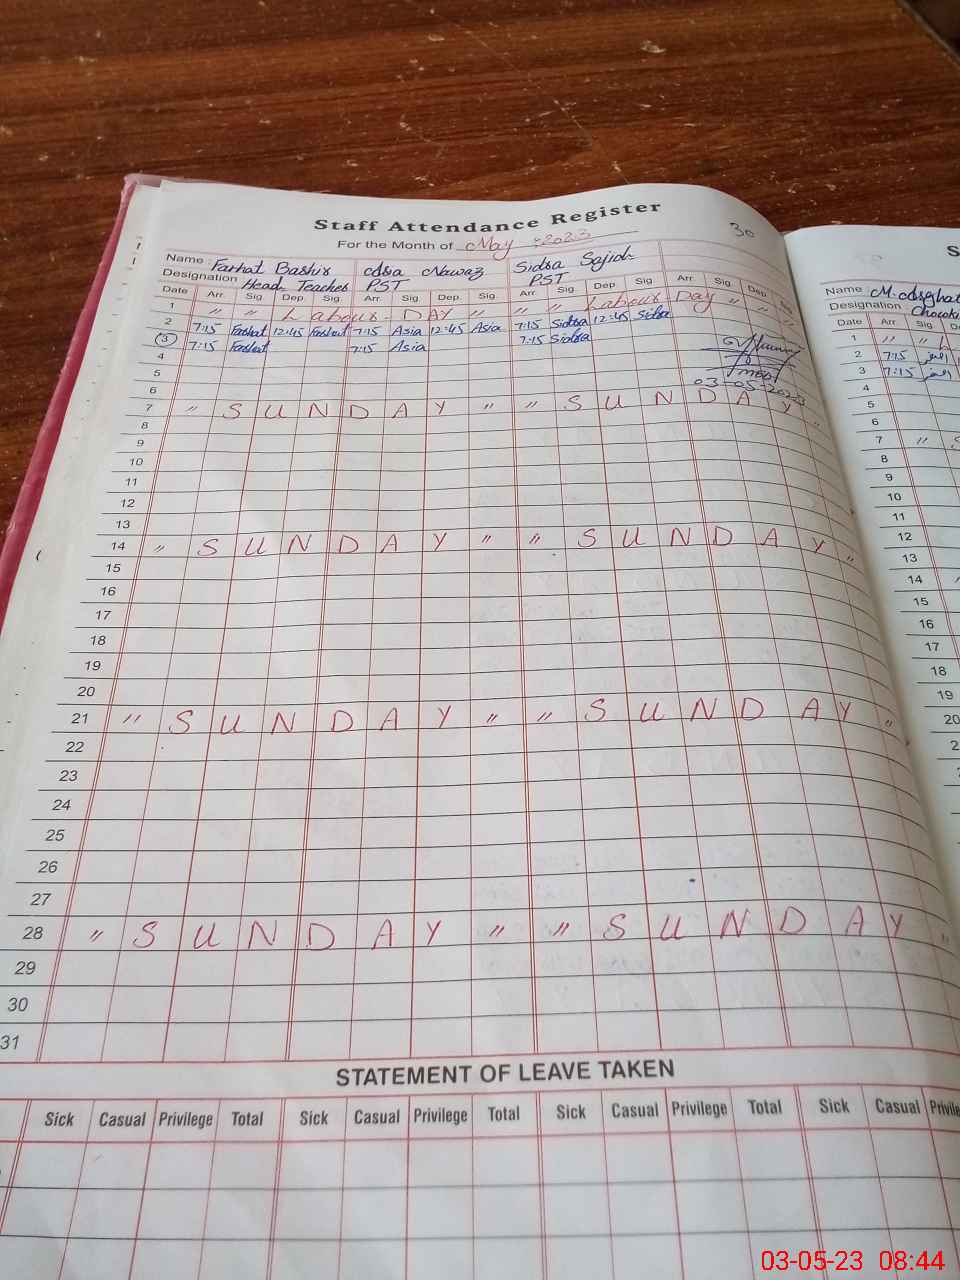 Staff Attendance Register
30
For the Month of May - 2023
Name : Farhat Bashir Asia Nawaz Sidra Sajid
Designation Head Teacher PST PST
Date Arr. Sig. Dep. Sig. Arr. Sig. Dep. Sig. Arr. Sig. Dep. Sig. Arr. Sig. Dep.
1 " " Labour DAY " " " Labour Day " "
2 7:15 Farhat 12:45 Farhat 7:15 Asia 12:45 Asia 7:15 Sidra 12:45 Sidra
3 7:15 Farhat 7:15 Asia 7:15 Sidra
4
5
03-05-2023
6
7 " S U N D A Y " " S U N D A Y "
8
9
10
11
12
13
14 " S U N D A Y " " S U N D A Y "
15
16
17
18
19
20
21 " S U N D A Y " " S U N D A Y "
22
23
24
25
26
27
28 " S U N D A Y " " S U N D A Y "
29
30
31
STATEMENT OF LEAVE TAKEN
Sick Casual Privilege Total Sick Casual Privilege Total Sick Casual Privilege Total Sick Casual
S
Name : M. Asghat
Designation
Date Arr. Sig.
1 " "
2 7:15
3 7:15
4
5
6
7 " S
8
9
10
11
12
13
14
15
16
17
18
19
20
03-05-23 08:44